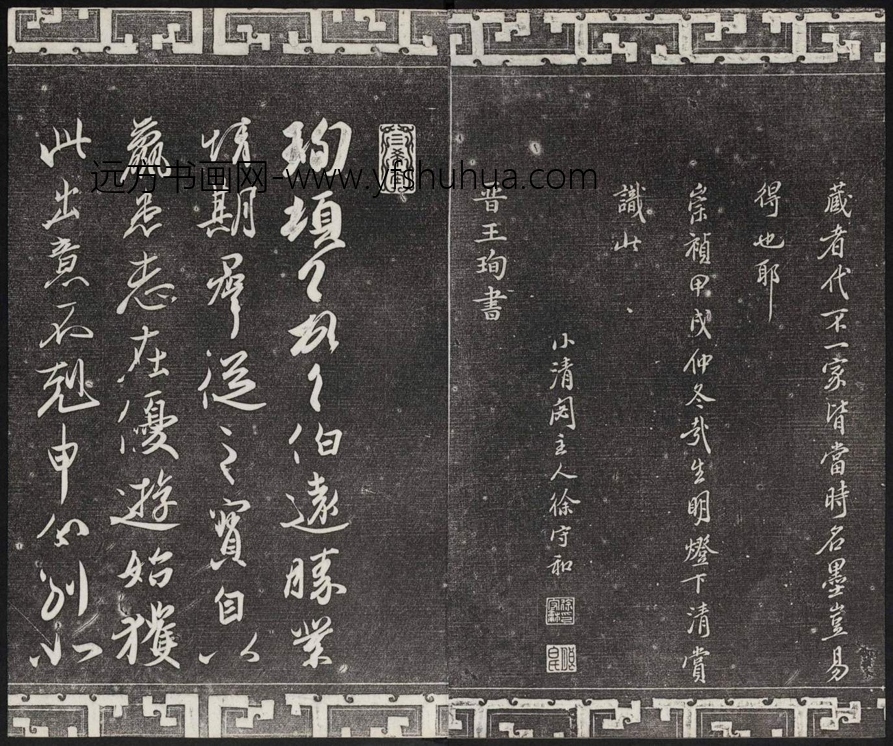 藏者代不一家皆當時名墨豈易
得也耶
崇禎甲戌仲冬哉生明燈下清賞
識此
小清閟主人徐守和
晉王珣書
珣頓首頓首伯遠勝業
情期群從之寶自以
羸患志在優遊始獲
此出意不剋申分別如
远方书画网-www.yfshuhua.com